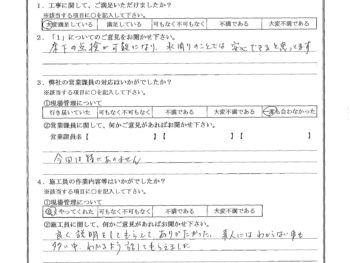 1．工事に関して、ご満足いただけましたか？
※該当する項目に○を記入して下さい。
大変満足している 満足している 可もなく不可もなく 不満である 大変不満である
2．「1」についてのご意見をお聞かせ下さい。
床下の点検が可能になり、水周りのことでは安心できると思っています
3．弊社の営業課員の対応はいかがでしたか？
※該当する項目に○を記入して下さい。
①現場管理について
行き届いていた 可もなく不可もなく 不満である 大変不満である 一度も会わなかった
②営業課員に関して、何かご意見があればお聞かせ下さい。
営業課員名【 】【 】【 】
今回は特にありません
4．施工員の作業内容等はいかがでしたか？
※該当する項目に○を記入して下さい。
①現場管理について
良くやってくれた 可もなく不可もなく 不満である 大変不満である
②施工員に関して、何かご意見があればお聞かせ下さい。
良く説明をしてもらえて、ありがたかった。素人にはわからない事も
多い中、わかるよう話してもらえました